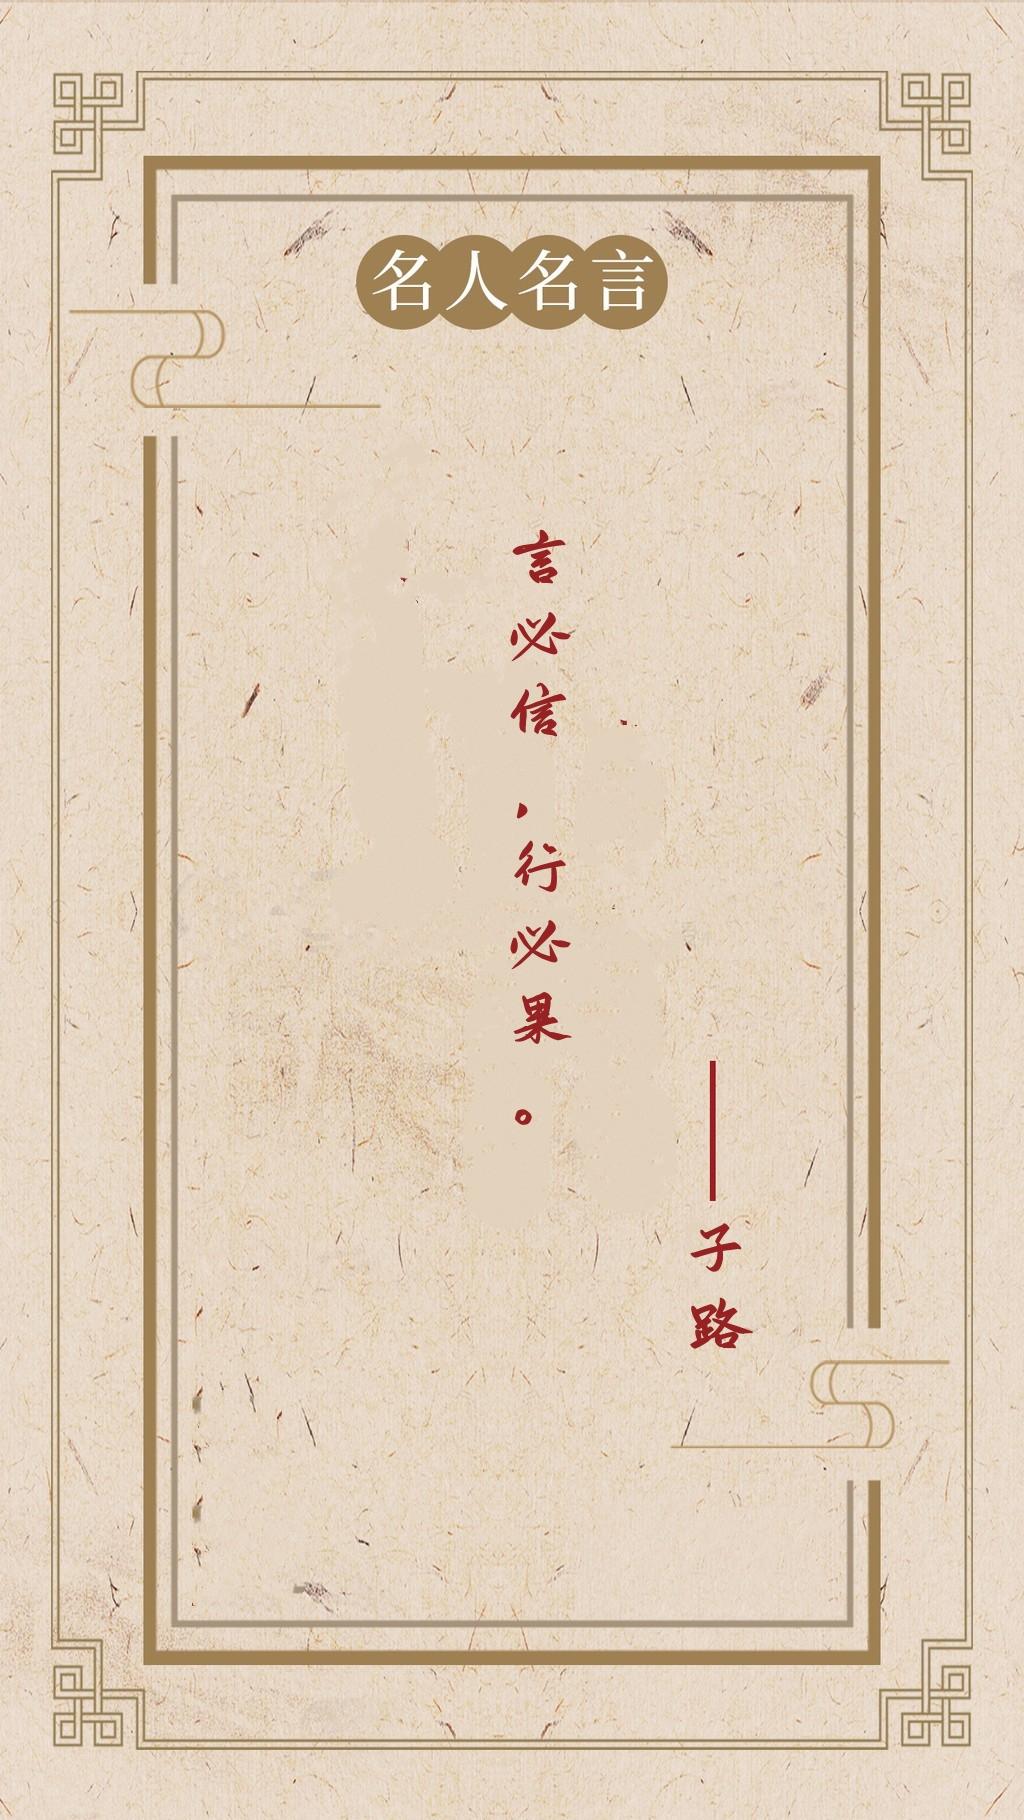 名人名言
言必信，行必果。
——子路